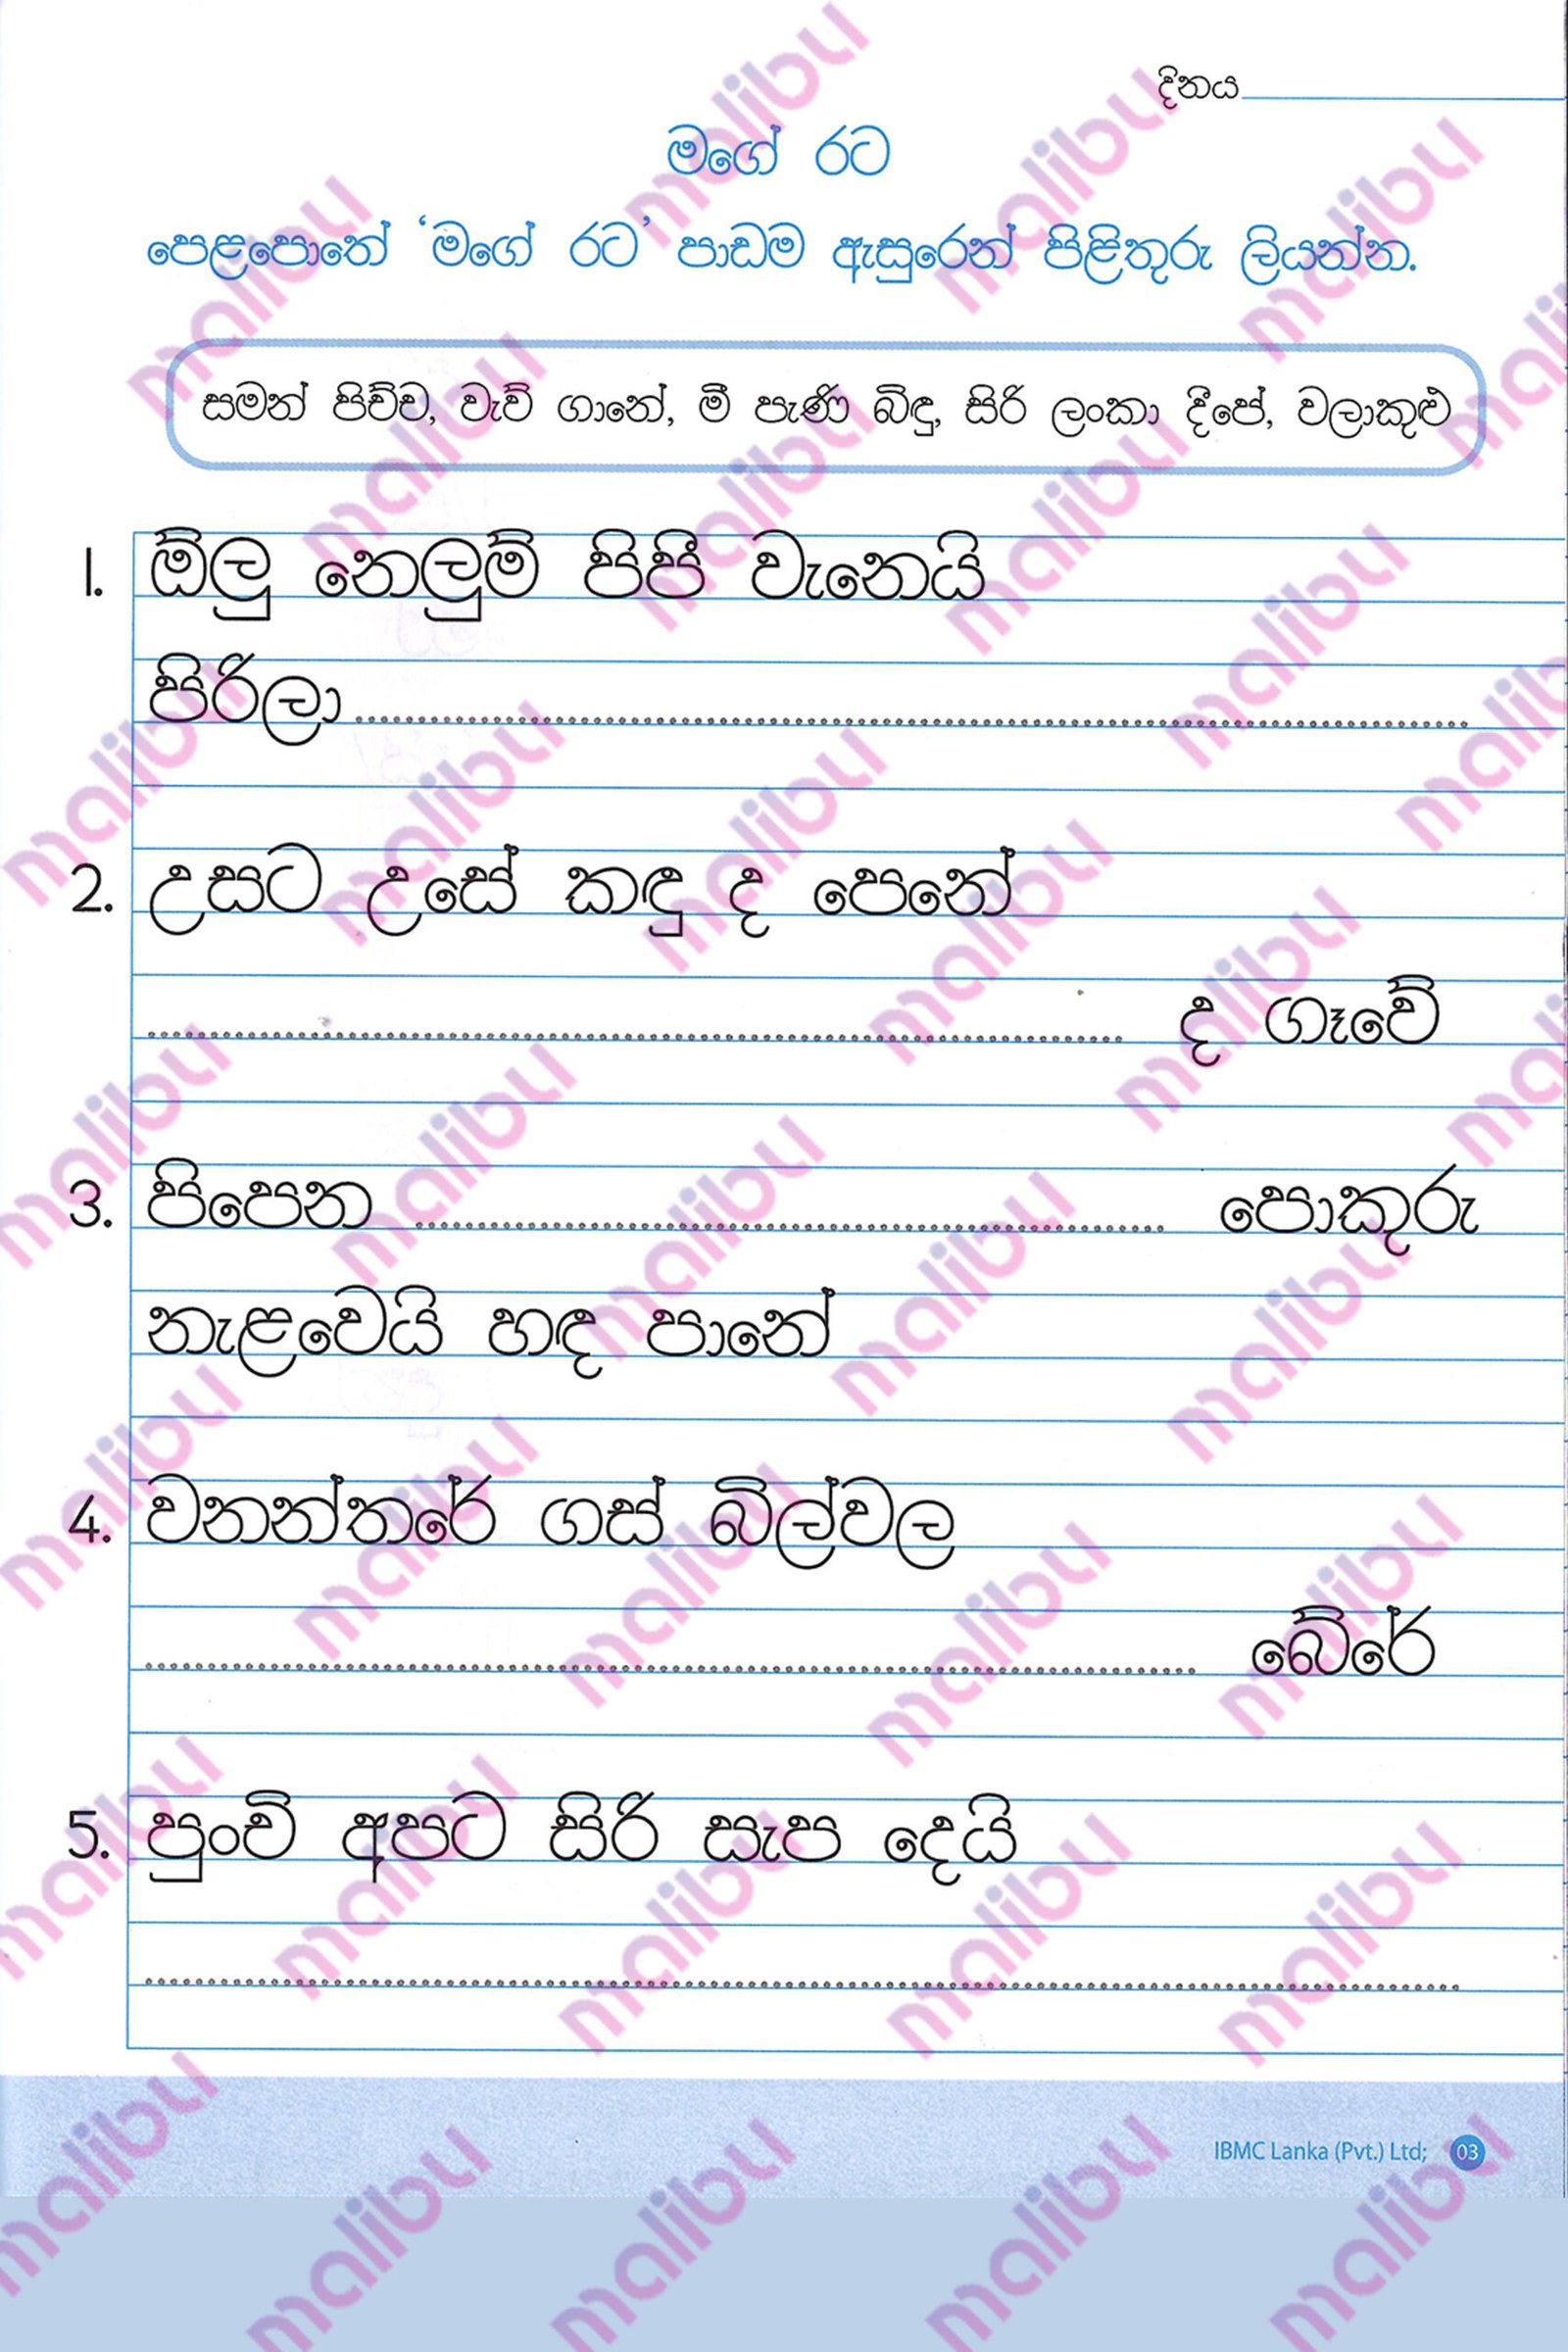 දිනය
මගේ රට
පෙළපොතේ ‘මගේ රට’ පාඩම ඇසුරෙන් පිළිතුරු ලියන්න.
සමන් පිච්ච, වැව් ගානේ, මී පැණි බිඳු, සිරි ලංකා දීපේ, වලාකුළු
1. ඕලු නෙලුම් පිපී වැනෙයි
පිරිලා ........................................
2. උසට උසේ කඳු ද පෙනේ
........................................ ද ගෑවේ
3. පිපෙන ........................................ පොකුරු
නැළවෙයි හඳ පානේ
4. වනන්තරේ ගස් බිල්වල
........................................ බේරේ
5. පුංචි අපට සිරි සැප දෙයි
........................................
IBMC Lanka (Pvt.) Ltd; 03
malibu